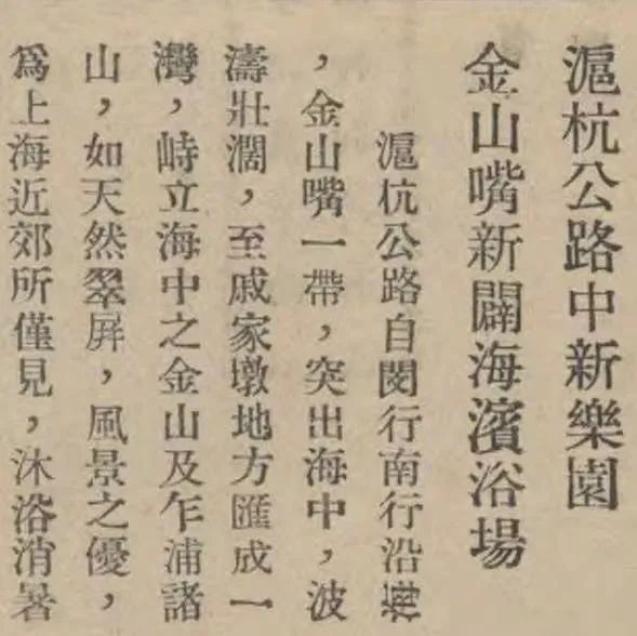 滬杭公路中新樂園
金山嘴新闢海濱浴場
滬杭公路自閔行南行沿海
，金山嘴一帶，突出海中，波
濤壯濶，至戚家墩地方匯成一
灣，峙立海中之金山及乍浦諸
山，如天然翠屏，風景之優，
爲上海近郊所僅見，沐浴消暑